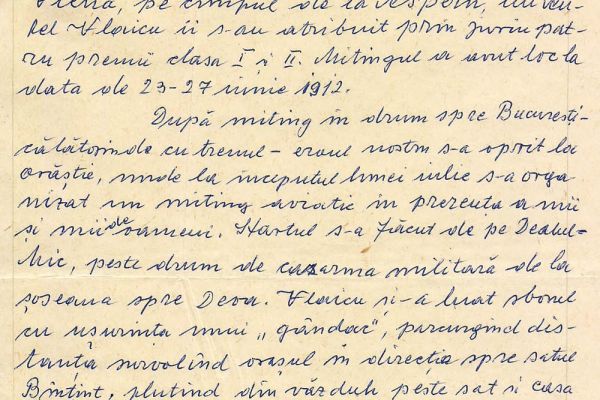 Viena, pe câmpul de la Aspern, inven-
tel Vlaicu îi s-au atribuit prin juriu pat-
ru premii clasa I și II. Mitingul a avut loc la
data de 23-27 iunie 1912.
După miting în drum spre București-
călătorinde cu trenul - eroul nostru s-a oprit la
Orăștie, unde la începutul lunei iulie s-a orga
nizat un miting aviatic în prezența a mii
și mii de oameni. Startul s-a făcut de pe Dealul-
Mic, peste drum de cazarma militară de la
șoseaua spre Deva. Vlaicu și-a luat sborul
cu ușurința unui „gândac", parcurgind dis-
tanța survolînd orașul în direcția spre satul
Bințint, plutind din văzduh peste sat și casa